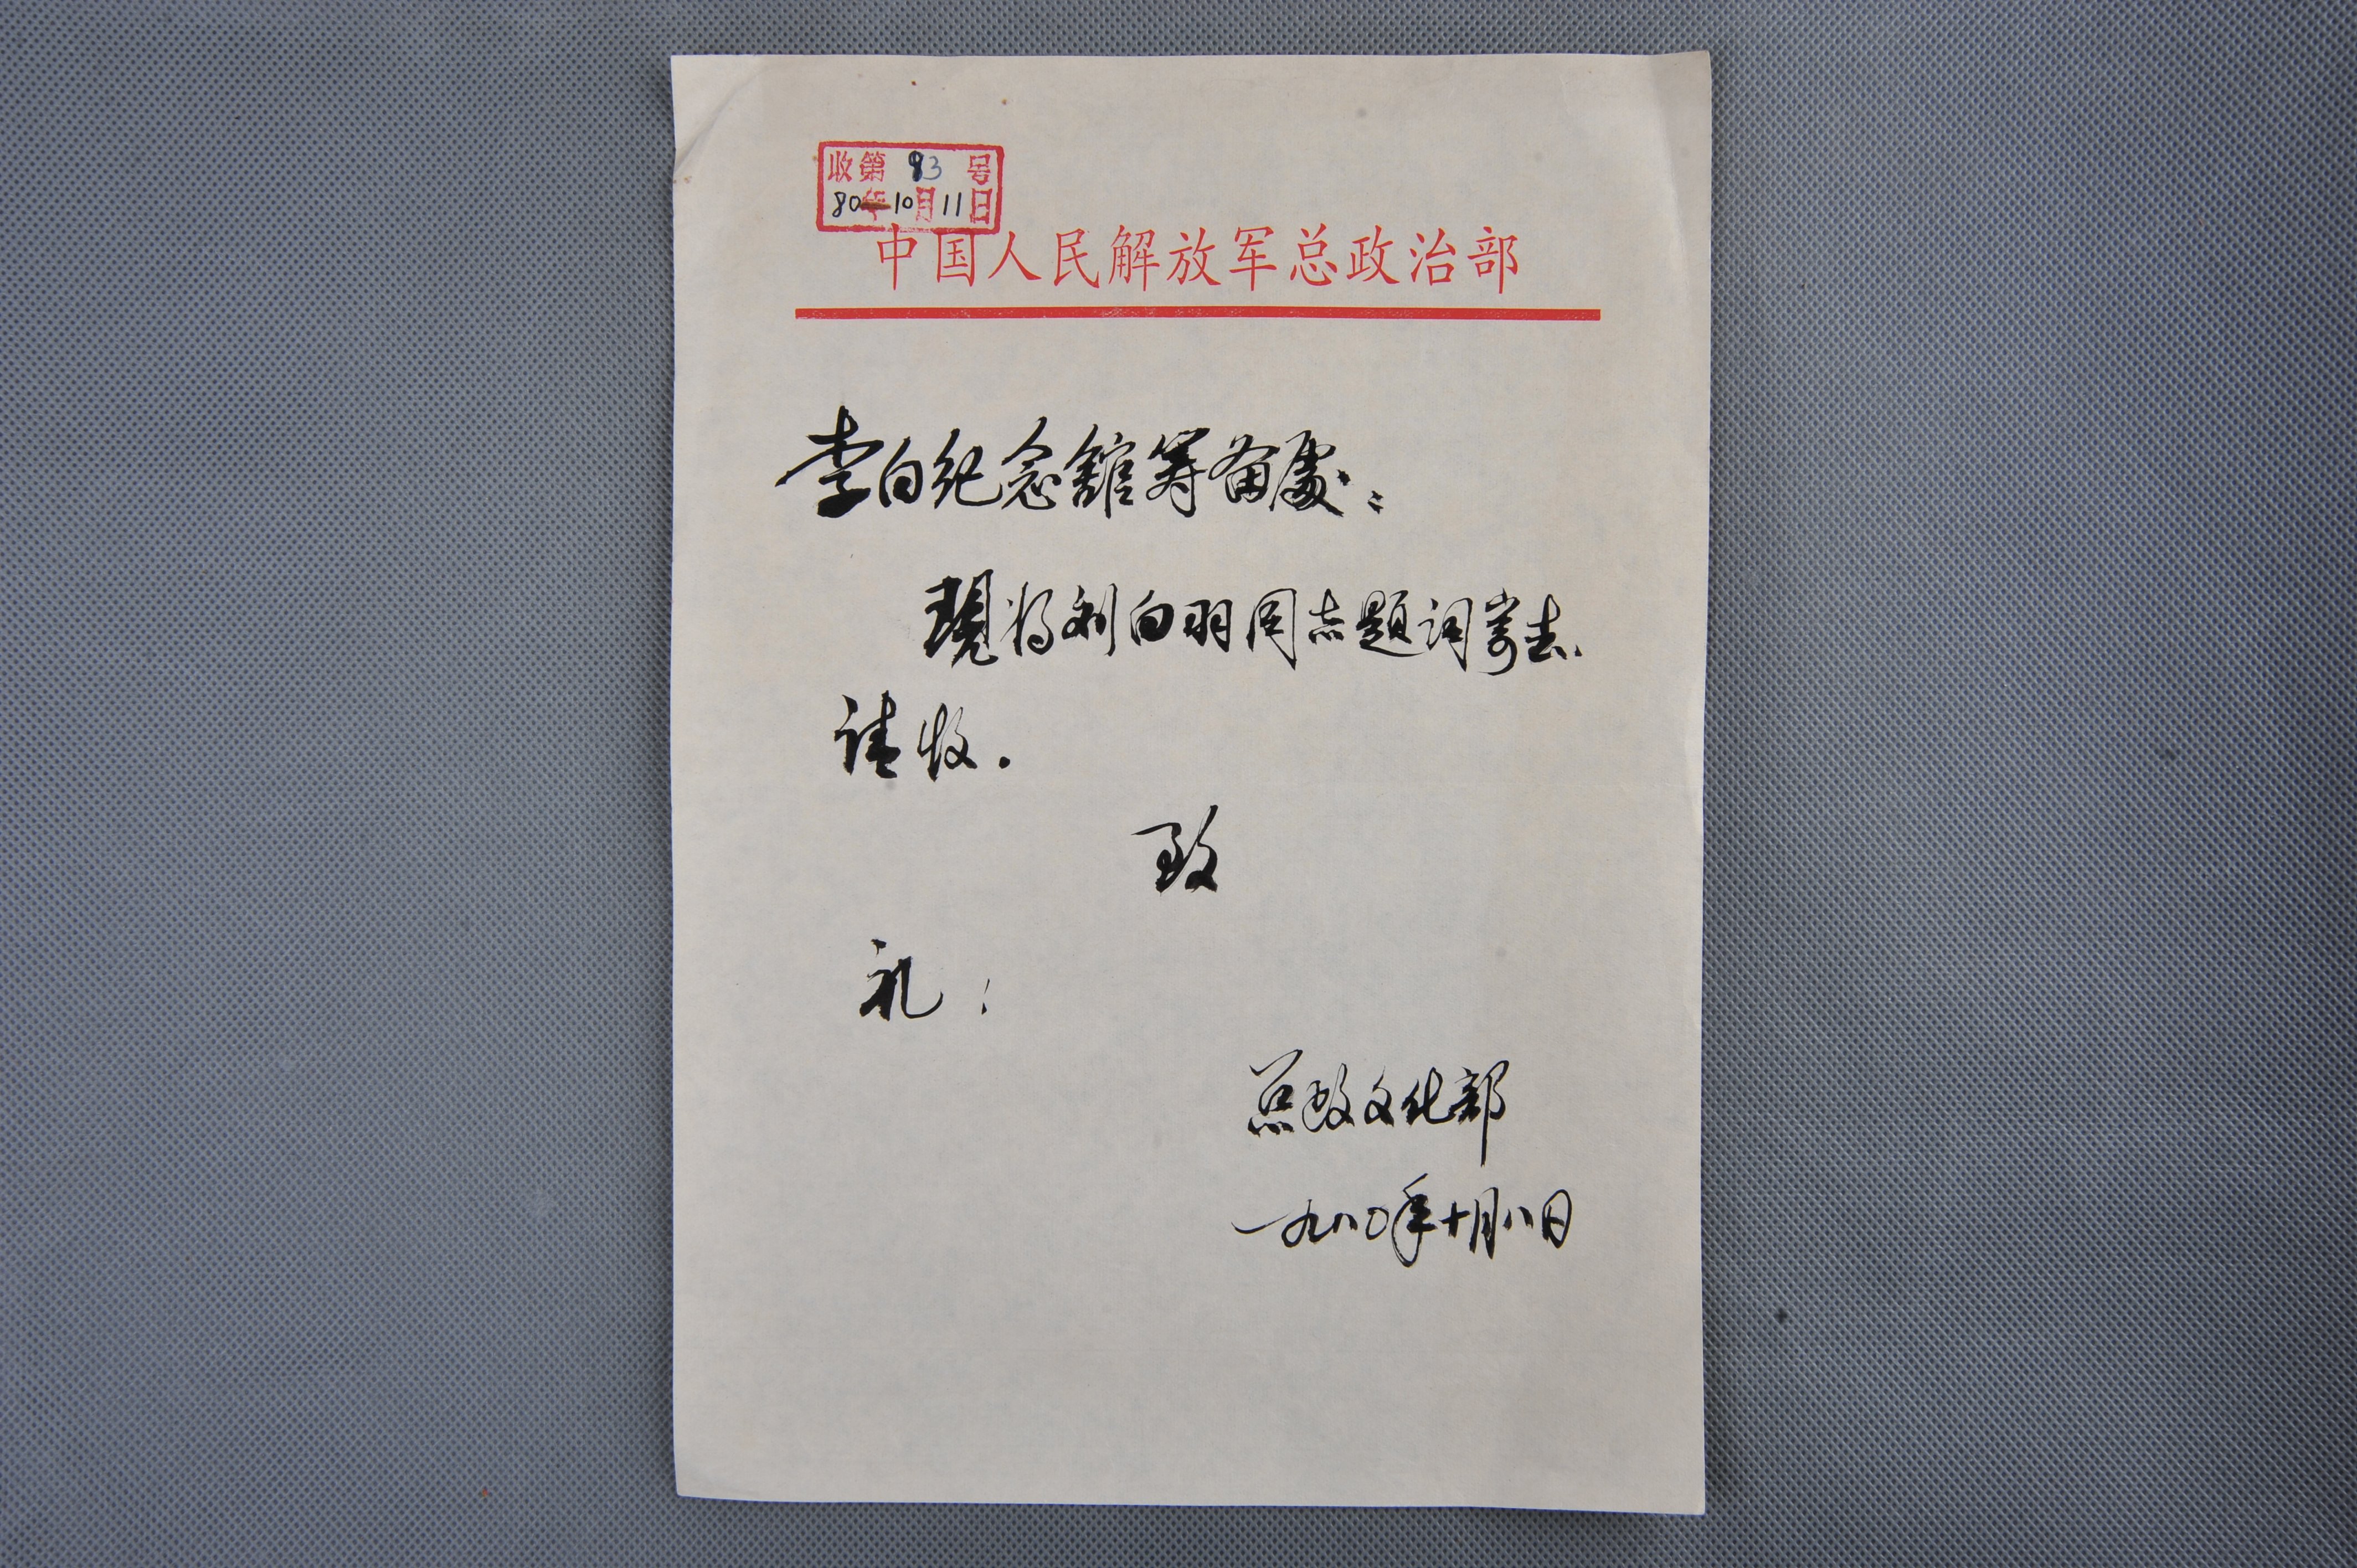 收第93号
80年10月11日
中国人民解放军总政治部
李白纪念舘筹备處：
现将刘白羽同志题词寄去、
请收.
致
礼！
总政文化部
一九八〇年十月八日